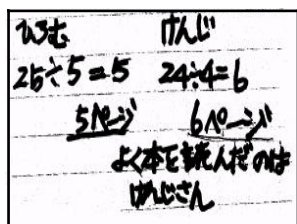 ひろむ けんじ
25÷5=5 24÷4=6
5ページ 6ページ
よく本を読んだのは
けんじさん